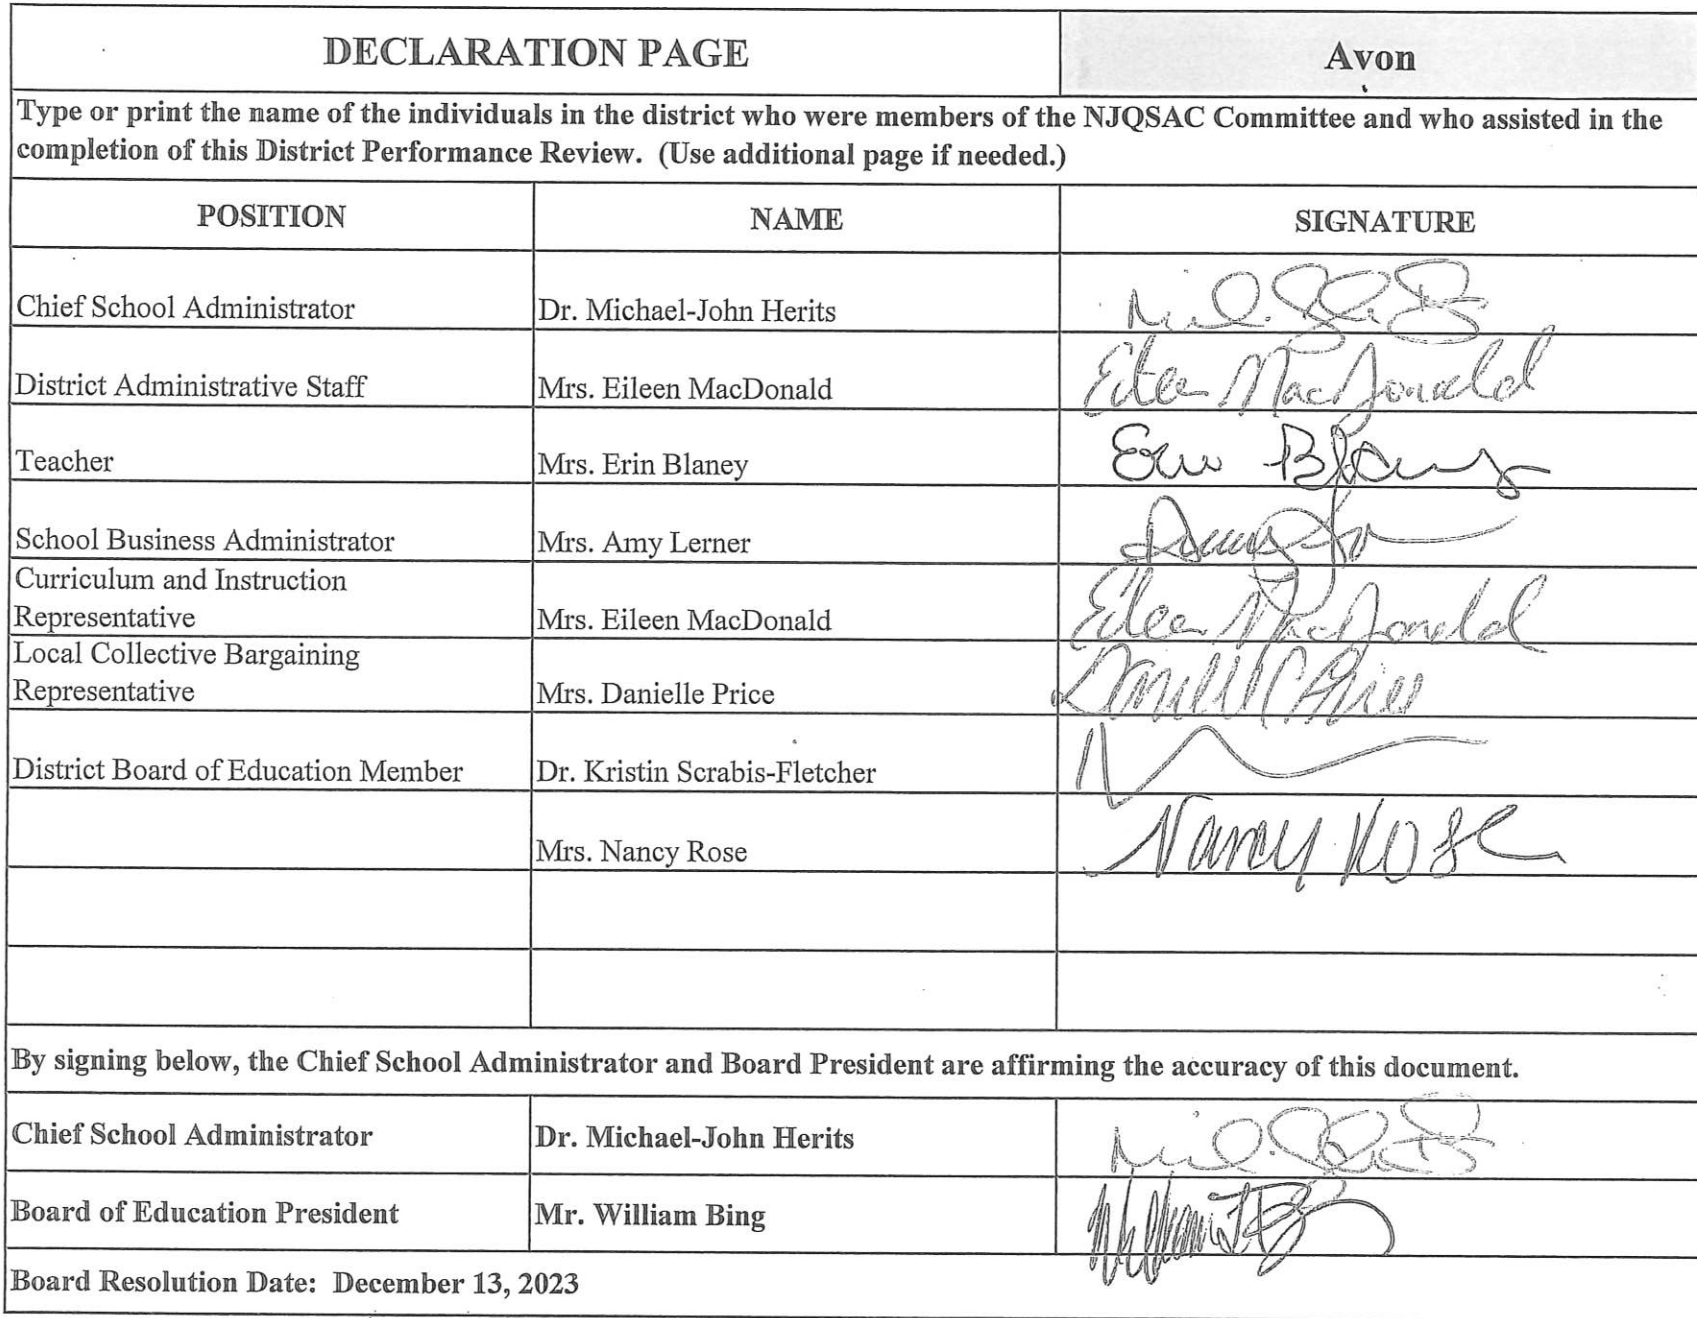 DECLARATION PAGE
Avon
Type or print the name of the individuals in the district who were members of the NJQSAC Committee and who assisted in the
completion of this District Performance Review. (Use additional page if needed.)
POSITION NAME SIGNATURE
Chief School Administrator Dr. Michael-John Herits
District Administrative Staff Mrs. Eileen MacDonald Eileen MacDonald
Teacher Mrs. Erin Blaney Erin Blaney
School Business Administrator Mrs. Amy Lerner
Curriculum and Instruction
Representative Mrs. Eileen MacDonald Eileen MacDonald
Local Collective Bargaining
Representative Mrs. Danielle Price Danielle C Price
District Board of Education Member Dr. Kristin Scrabis-Fletcher
Mrs. Nancy Rose Nancy Rose
By signing below, the Chief School Administrator and Board President are affirming the accuracy of this document.
Chief School Administrator Dr. Michael-John Herits
Board of Education President Mr. William Bing
Board Resolution Date: December 13, 2023